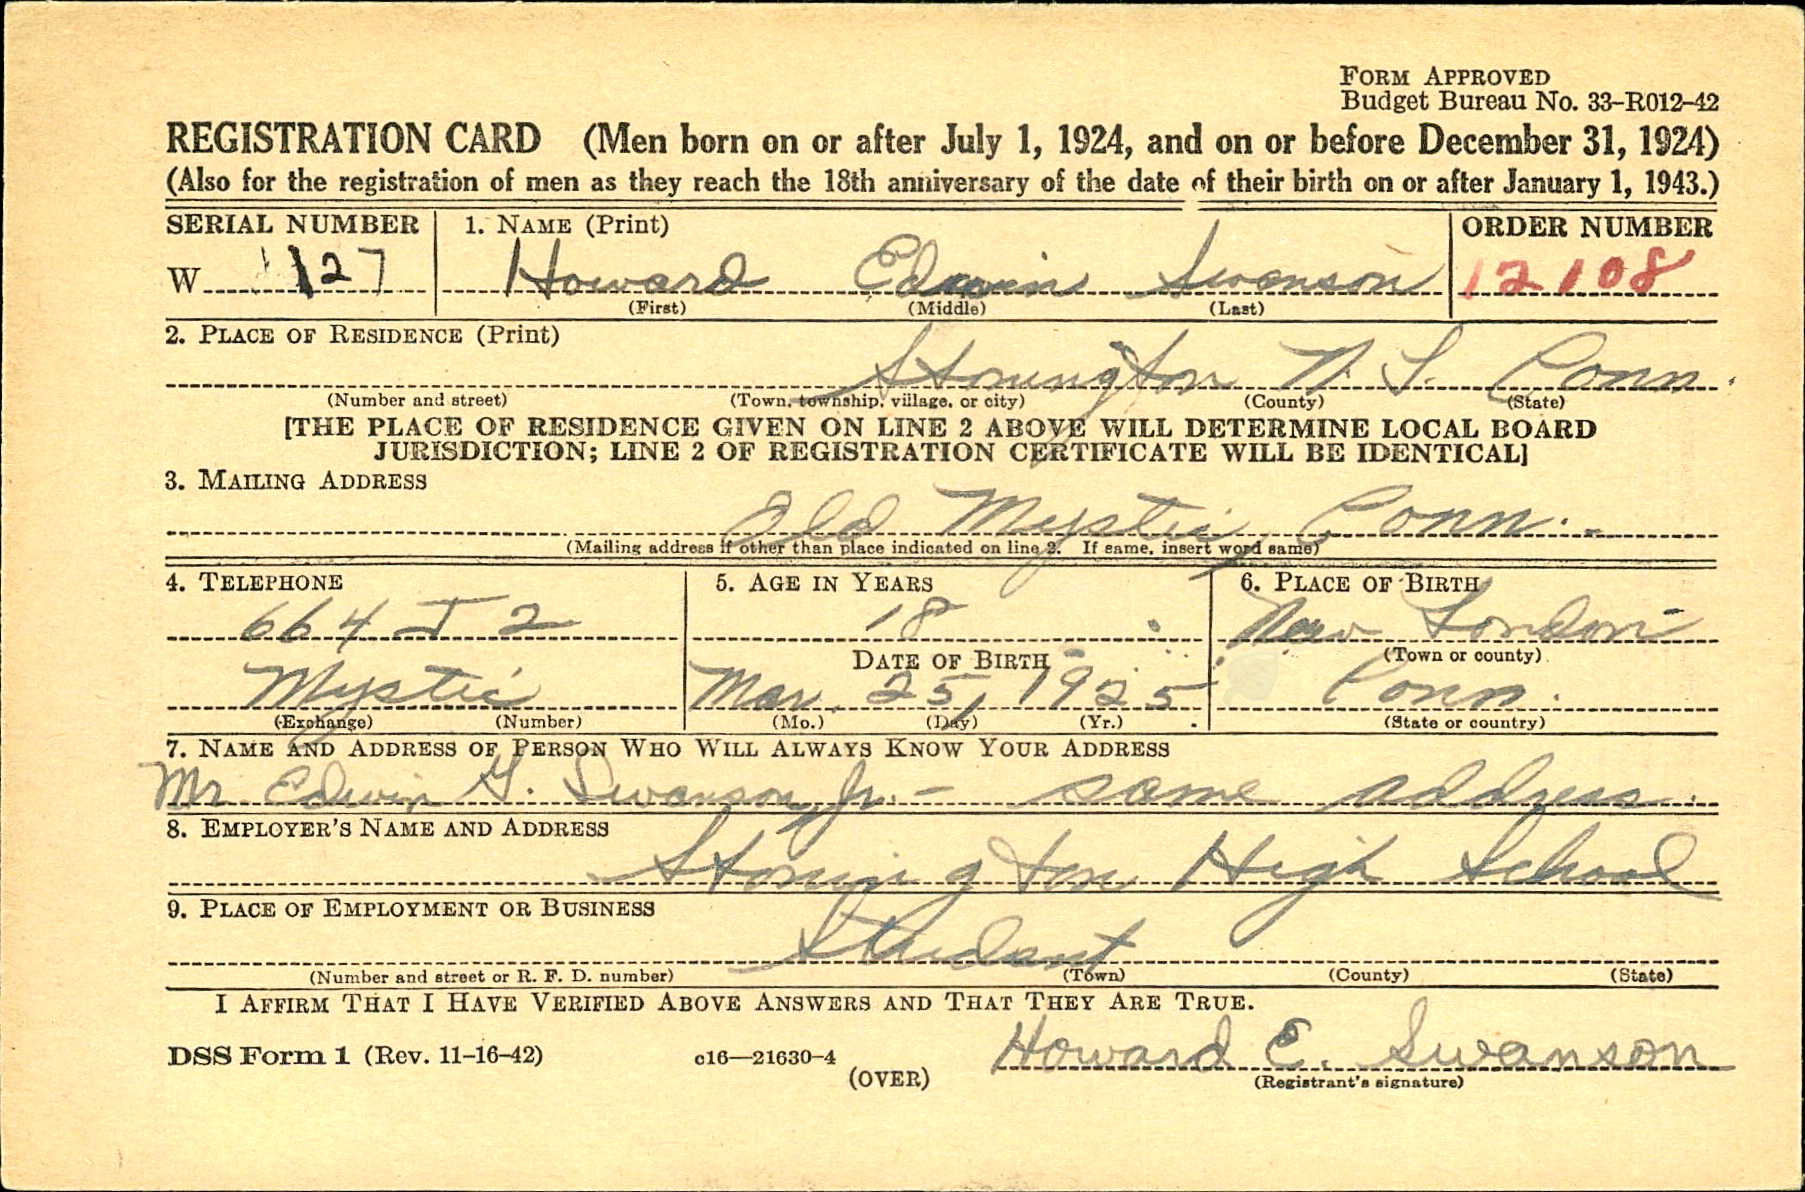 FORM APPROVED
Budget Bureau No. 33-R012-42
REGISTRATION CARD (Men born on or after July 1, 1924, and on or before December 31, 1924)
(Also for the registration of men as they reach the 18th anniversary of the date of their birth on or after January 1, 1943.)
SERIAL NUMBER 1. NAME (Print) ORDER NUMBER
W 127 Howard Edwin Swanson 12108
(First) (Middle) (Last)
2. PLACE OF RESIDENCE (Print)
Stonington N. L. Conn.
(Number and street) (Town, township, village, or city) (County) (State)
[THE PLACE OF RESIDENCE GIVEN ON LINE 2 ABOVE WILL DETERMINE LOCAL BOARD
JURISDICTION; LINE 2 OF REGISTRATION CERTIFICATE WILL BE IDENTICAL]
3. MAILING ADDRESS
Old Mystic, Conn.
(Mailing address if other than place indicated on line 2. If same, insert word same)
4. TELEPHONE 5. AGE IN YEARS 6. PLACE OF BIRTH
664 J 2 18 New London
DATE OF BIRTH (Town or county)
Mystic Mar. 25, 1925 Conn.
(Exchange) (Number) (Mo.) (Day) (Yr.) (State or country)
7. NAME AND ADDRESS OF PERSON WHO WILL ALWAYS KNOW YOUR ADDRESS
Mr. Edwin G. Swanson, Jr. - same address.
8. EMPLOYER'S NAME AND ADDRESS
Stonington High School
9. PLACE OF EMPLOYMENT OR BUSINESS
Student
(Number and street or R. F. D. number) (Town) (County) (State)
I AFFIRM THAT I HAVE VERIFIED ABOVE ANSWERS AND THAT THEY ARE TRUE.
DSS Form 1 (Rev. 11-16-42) c16—21630-4 Howard E. Swanson
(OVER) (Registrant's signature)